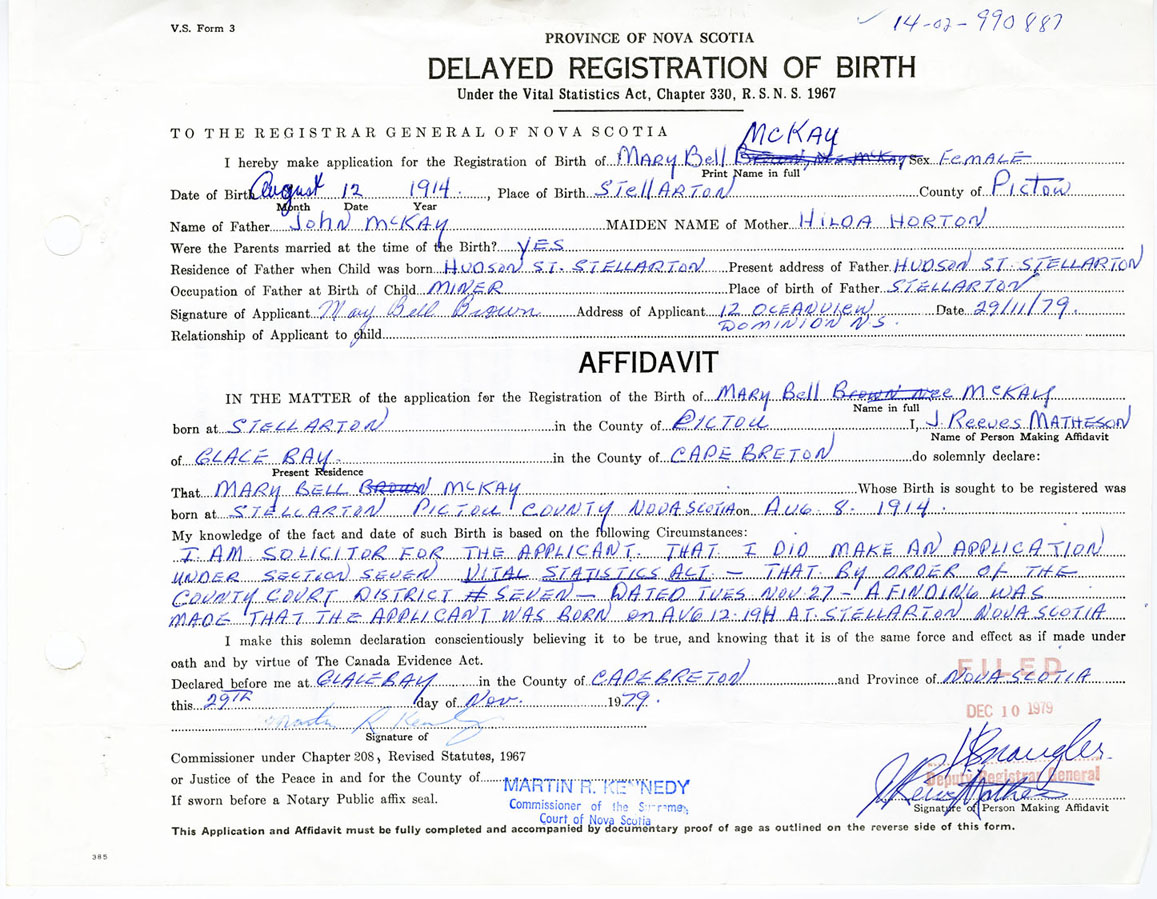 V.S. Form 3
14-02-990887
PROVINCE OF NOVA SCOTIA
DELAYED REGISTRATION OF BIRTH
Under the Vital Statistics Act, Chapter 330, R. S. N. S. 1967
TO THE REGISTRAR GENERAL OF NOVA SCOTIA
McKAY
I hereby make application for the Registration of Birth of MARY Bell Brown, nee McKay Sex FemALE
Print Name in full
Date of Birth August 12 1914. , Place of Birth STellARTON County of PICTOU
Month Date Year
Name of Father JOHN McKAY MAIDEN NAME of Mother HILDA HORTON
Were the Parents married at the time of the Birth? YES
Residence of Father when Child was born HUDSON ST. STELLARTON Present address of Father HUDSON ST. STELLARTON
Occupation of Father at Birth of Child MINER Place of birth of Father STELLARTON
Signature of Applicant Mary Bell Brown Address of Applicant 12 OCEANVIEW Date 29/11/79.
DOMINION N.S.
Relationship of Applicant to child
AFFIDAVIT
IN THE MATTER of the application for the Registration of the Birth of MARY Bell Brown nee McKAY
Name in full
born at STELLARTON in the County of PICTOU I, J. Reeves MATHESON
Name of Person Making Affidavit
of GLACE BAY. in the County of CAPE BRETON do solemnly declare:
Present Residence
That MARY BELL BROWN McKAY Whose Birth is sought to be registered was
born at STELLARTON PICTOU COUNTY NOVA SCOTIA on AUG 8. 1914.
My knowledge of the fact and date of such Birth is based on the following Circumstances:
I AM SOLICITOR FOR THE APPLICANT. THAT I DID MAKE AN APPLICATION
UNDER SECTION SEVEN VITAL STATISTICS ACT - THAT BY ORDER OF THE
COUNTY COURT DISTRICT # SEVEN - DATED TUES NOV. 27 - A FINDING WAS
MADE THAT THE APPLICANT WAS BORN ON AUG 12. 1914 AT STELLARTON NOVA SCOTIA
I make this solemn declaration conscientiously believing it to be true, and knowing that it is of the same force and effect as if made under
oath and by virtue of The Canada Evidence Act.
FILED
Declared before me at GLACE BAY in the County of CAPE BRETON and Province of NOVA SCOTIA
this 29TH day of NOV. 1979.
DEC 10 1979
Martin R Kennedy
Signature of
Commissioner under Chapter 208, Revised Statutes, 1967
or Justice of the Peace in and for the County of
Deputy Registrar General
MARTIN R. KENNEDY
If sworn before a Notary Public affix seal.
Commissioner of the Supreme
Court of Nova Scotia
J Reeves Matheson
Signature of Person Making Affidavit
This Application and Affidavit must be fully completed and accompanied by documentary proof of age as outlined on the reverse side of this form.
385